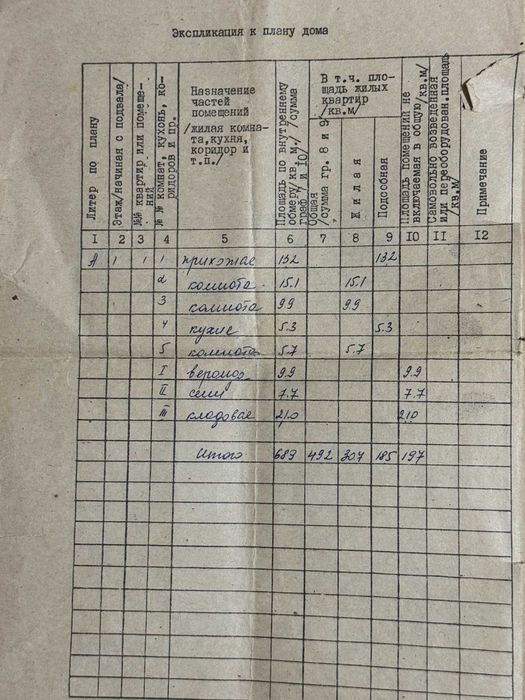 Экспликация к плану дома
Литер по плану
Этаж/начиная с подвала/
№№ квартир или помещения
№ № комнат, кухонь, коридоров и пр.
Назначение
частей
помещений
/жилая комна-
та, кухня,
коридор и
т.п./
Площадь по внутреннему
обмеру/кв.м./ /сумма
граф 7 и 10/
В т.ч. пло-
щадь жилых
квартир
/кв.м/
Общая
/сумма гр. 8 и 9/
Жилая
Подсобная
Площадь помещений не
включаемая в общую/кв.м/
Самовольно возведенная
или переоборудован.площадь
/кв.м/
Примечание
I 2 3 4 5 6 7 8 9 IO II I2
А 1 1 1 прихожае 13.2 13.2
2 комнота 15.1 15.1
3 комнота 9.9 9.9
4 кухне 5.3 5.3
5 комнота 5.7 5.7
I 9.9 9.9
II сени 7.7 7.7
III кладовае 21.0 21.0
Итого 68.9 49.2 30.7 18.5 19.7